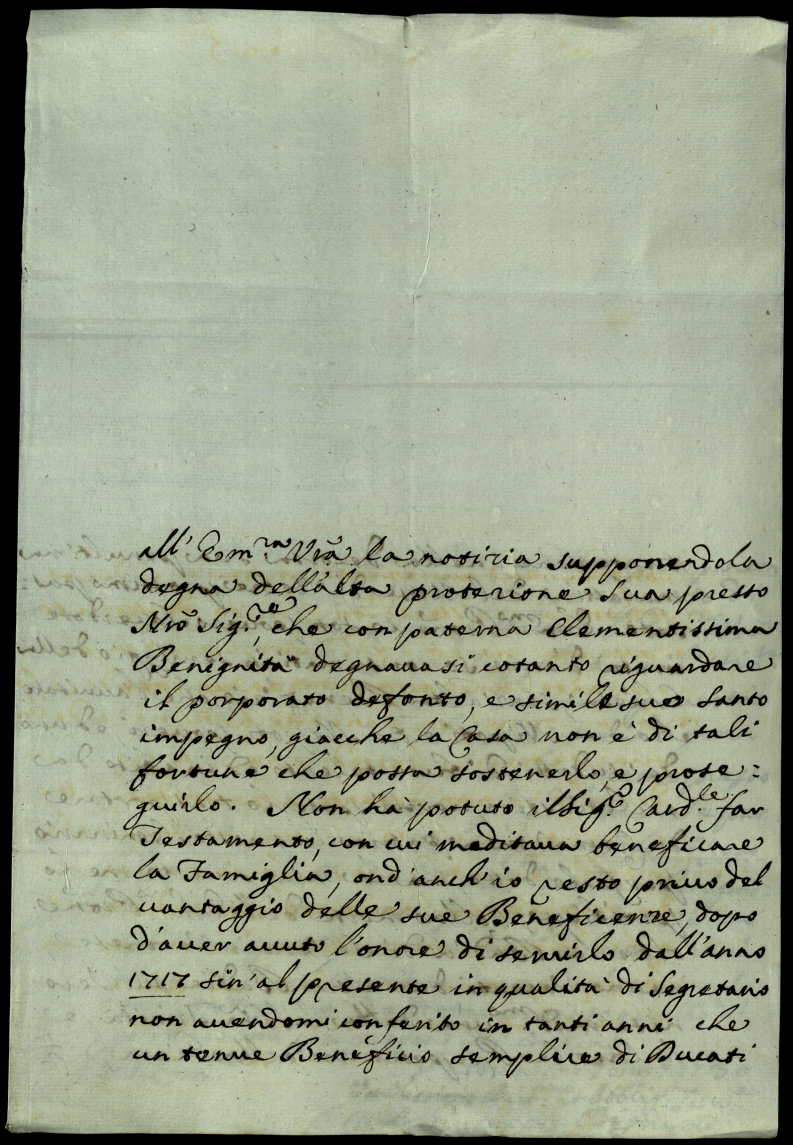 all' Em.ra Vrã la notizia supponendola
degna dell'alta protezione sua presso
Nrõ Sig.re, che con paterna Clementissima
Benignità degnauasi cotanto riguardare
il porporato defonto, e simile suo santo
impegno, giacche la Casa non è di tali
fortune che possa sostenerlo, e prose:
guirlo. Non ha potuto il Sig.e Card.le far
Testamento, con cui meditaua beneficare
la Famiglia, ond'anch'io resto priuo del
uantaggio delle sue Beneficenze, dopo
d'auer auuto l'onore di seruirlo dall'anno
1717 sin'al presente in qualità di Segretario
non auendomi conferito in tanti anni che
un tenue Beneficio semplice di Ducati